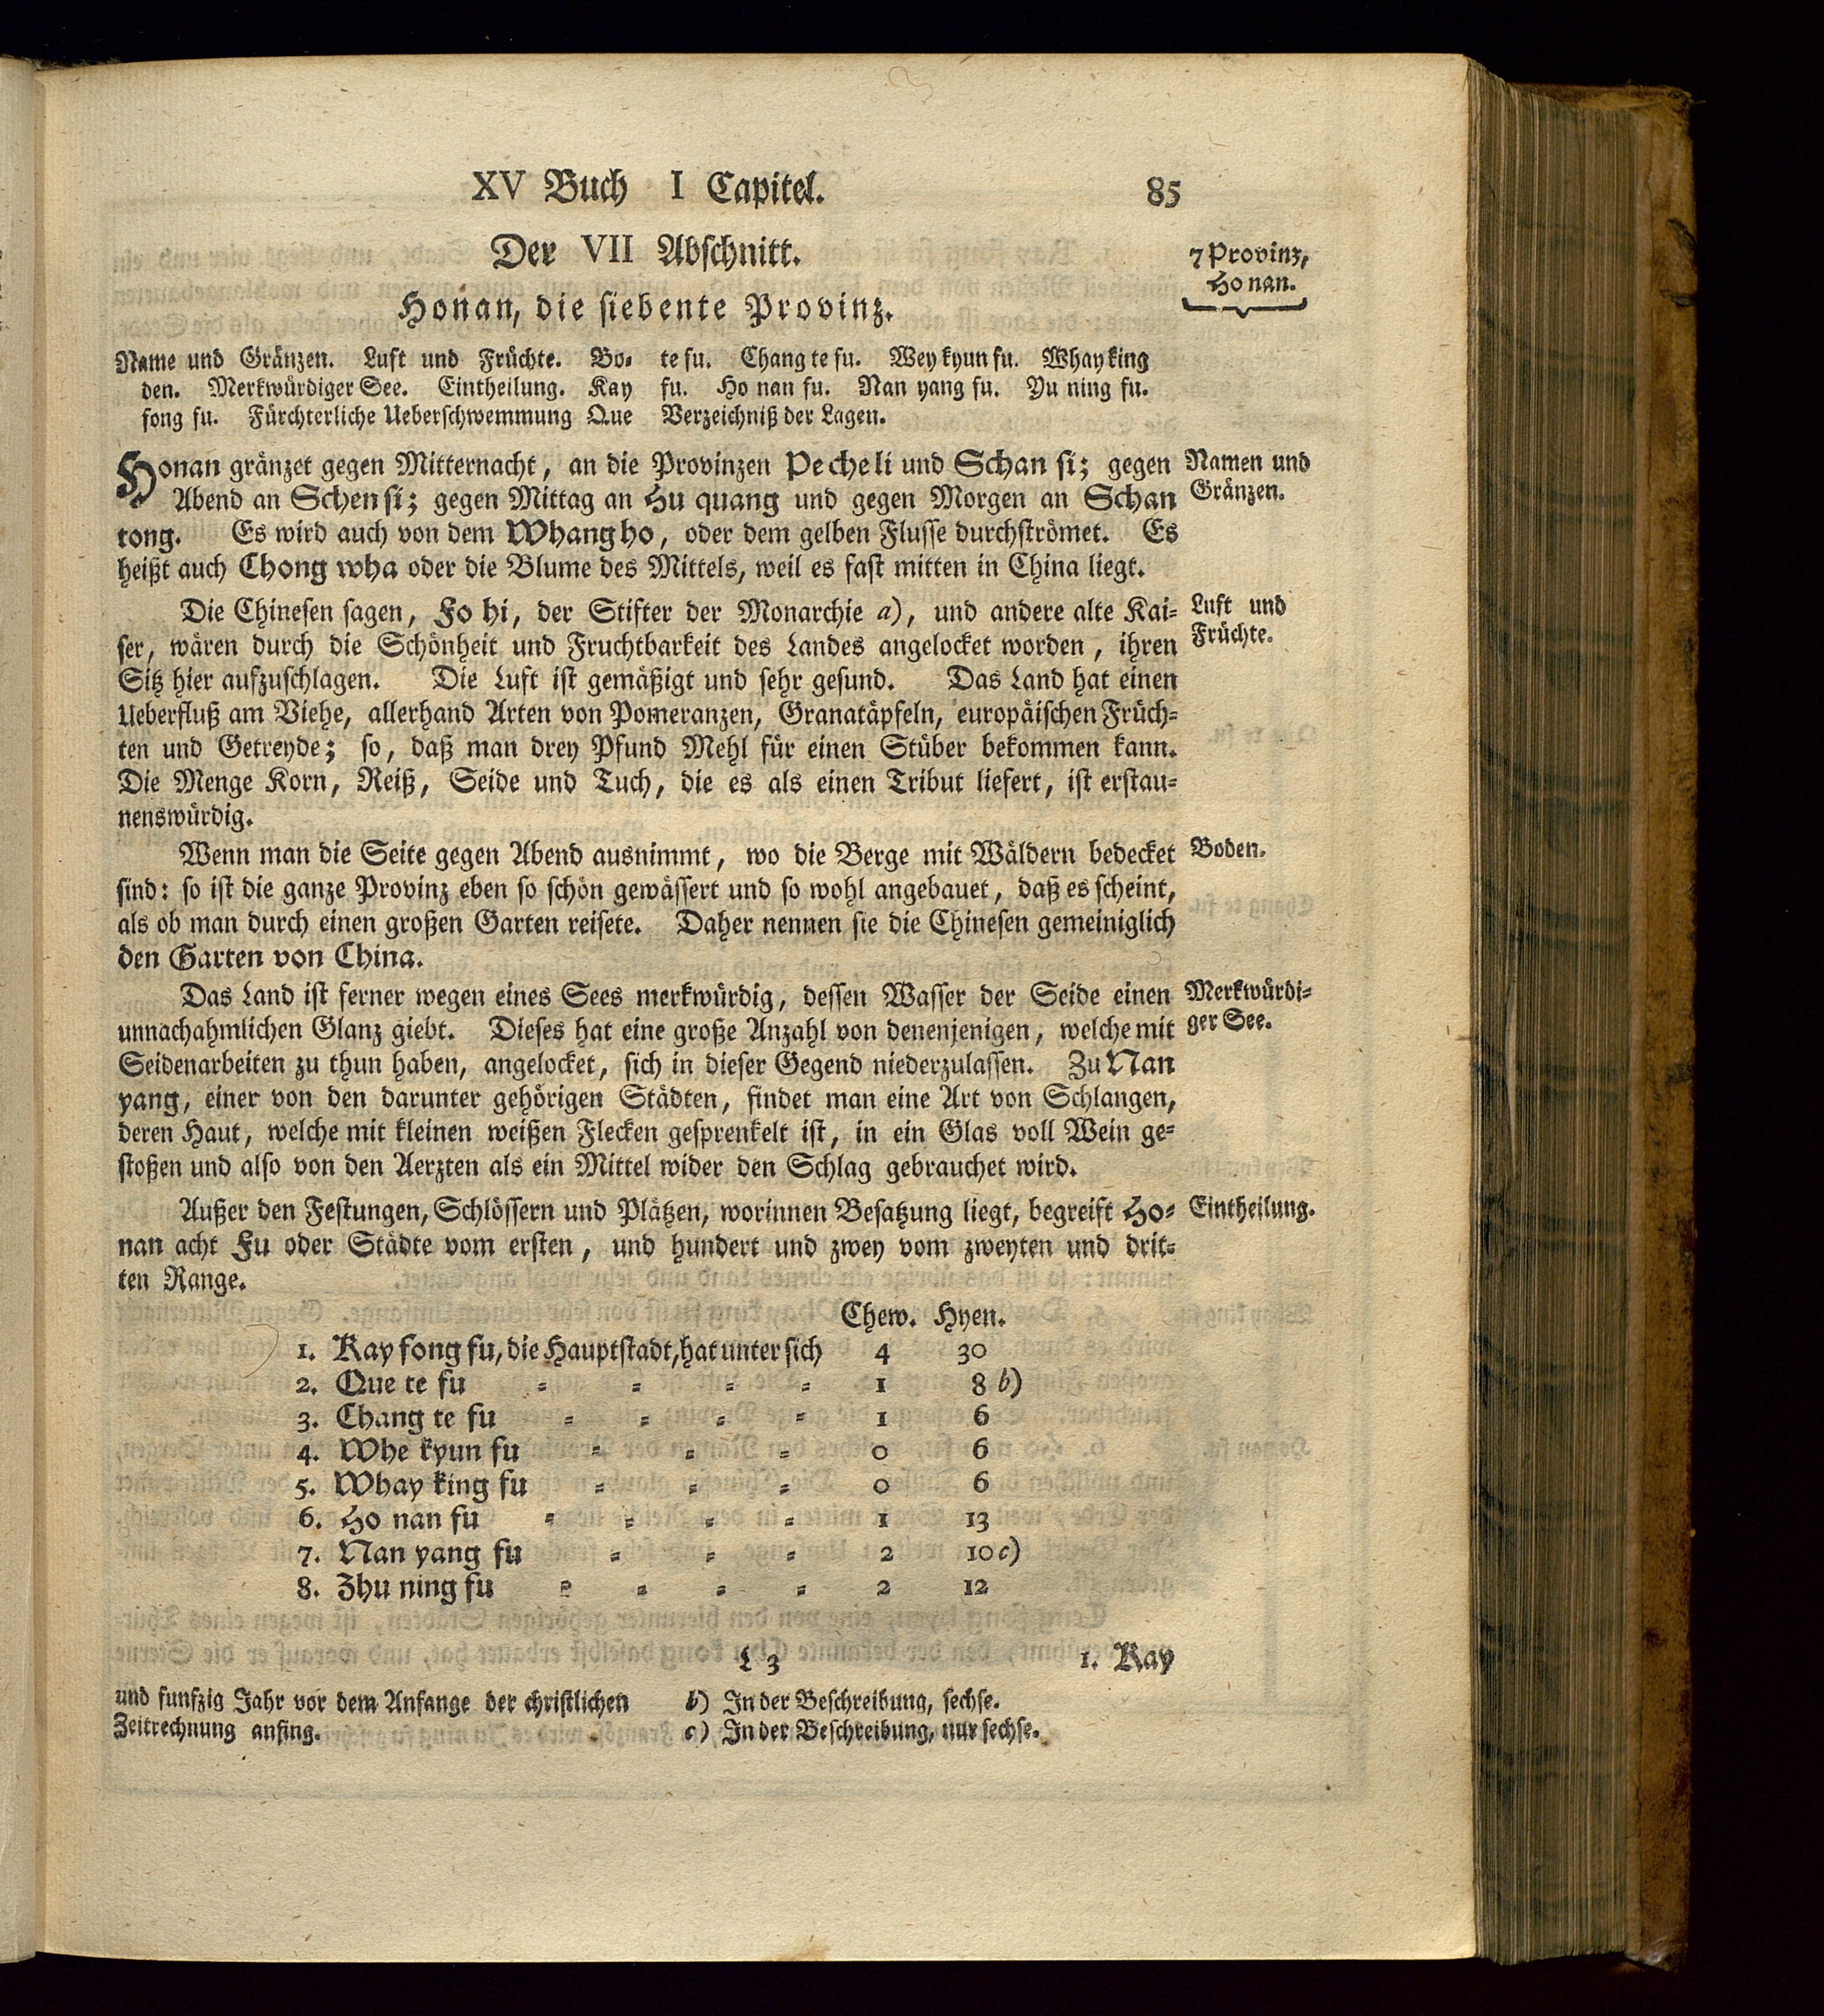 XV Buch I Capitel. 85
Der VII Abschnitt.
7 Provinz,
Ho nan.
Honan, die siebente Provinz.
Name und Gränzen. Luft und Früchte. Bo-
den. Merkwürdiger See. Eintheilung. Kay
fong fu. Fürchterliche Ueberschwemmung Que
te fu. Chang te fu. Wey kyun fu. Whay king
fu. Ho nan fu. Nan yang fu. Yu ning fu.
Verzeichniß der Lagen.
Honan gränzet gegen Mitternacht, an die Provinzen Pe che li und Schan si; gegen
Abend an Schen si; gegen Mittag an Hu quang und gegen Morgen an Schan
tong. Es wird auch von dem Whang ho, oder dem gelben Flusse durchströmet. Es
heißt auch Chong wha oder die Blume des Mittels, weil es fast mitten in China liegt.
Namen und
Gränzen.
Die Chinesen sagen, Fo hi, der Stifter der Monarchie a), und andere alte Kai-
ser, wären durch die Schönheit und Fruchtbarkeit des Landes angelocket worden, ihren
Sitz hier aufzuschlagen. Die Luft ist gemäßigt und sehr gesund. Das Land hat einen
Ueberfluß am Viehe, allerhand Arten von Pomeranzen, Granatäpfeln, europäischen Früch-
ten und Getreyde; so, daß man drey Pfund Mehl für einen Stüber bekommen kann.
Die Menge Korn, Reiß, Seide und Tuch, die es als einen Tribut liefert, ist erstau-
nenswürdig.
Luft und
Früchte.
Wenn man die Seite gegen Abend ausnimmt, wo die Berge mit Wäldern bedecket
sind: so ist die ganze Provinz eben so schön gewässert und so wohl angebauet, daß es scheint,
als ob man durch einen großen Garten reisete. Daher nennen sie die Chinesen gemeiniglich
den Garten von China.
Boden.
Das Land ist ferner wegen eines Sees merkwürdig, dessen Wasser der Seide einen
unnachahmlichen Glanz giebt. Dieses hat eine große Anzahl von denenjenigen, welche mit
Seidenarbeiten zu thun haben, angelocket, sich in dieser Gegend niederzulassen. Zu Nan
yang, einer von den darunter gehörigen Städten, findet man eine Art von Schlangen,
deren Haut, welche mit kleinen weißen Flecken gesprenkelt ist, in ein Glas voll Wein ge-
stoßen und also von den Aerzten als ein Mittel wider den Schlag gebrauchet wird.
Merkwürdi-
ger See.
Außer den Festungen, Schlössern und Plätzen, worinnen Besatzung liegt, begreift Ho-
nan acht Fu oder Städte vom ersten, und hundert und zwey vom zweyten und drit-
ten Range.
Eintheilung.
Chew. Hyen.
1. Kay fong fu, die Hauptstadt, hat unter sich 4 30
2. Que te fu - - - - 1 8 b)
3. Chang te fu - - - - 1 6
4. Whe kyun fu - - - 0 6
5. Whay king fu - - - 0 6
6. Ho nan fu - - - - 1 13
7. Nan yang fu - - - 2 10 c)
8. Zhu ning fu - - - - 2 12
L 3 1. Kay
und funfzig Jahr vor dem Anfange der christlichen
Zeitrechnung anfing.
b) In der Beschreibung, sechse.
c) In der Beschreibung, nur sechse.